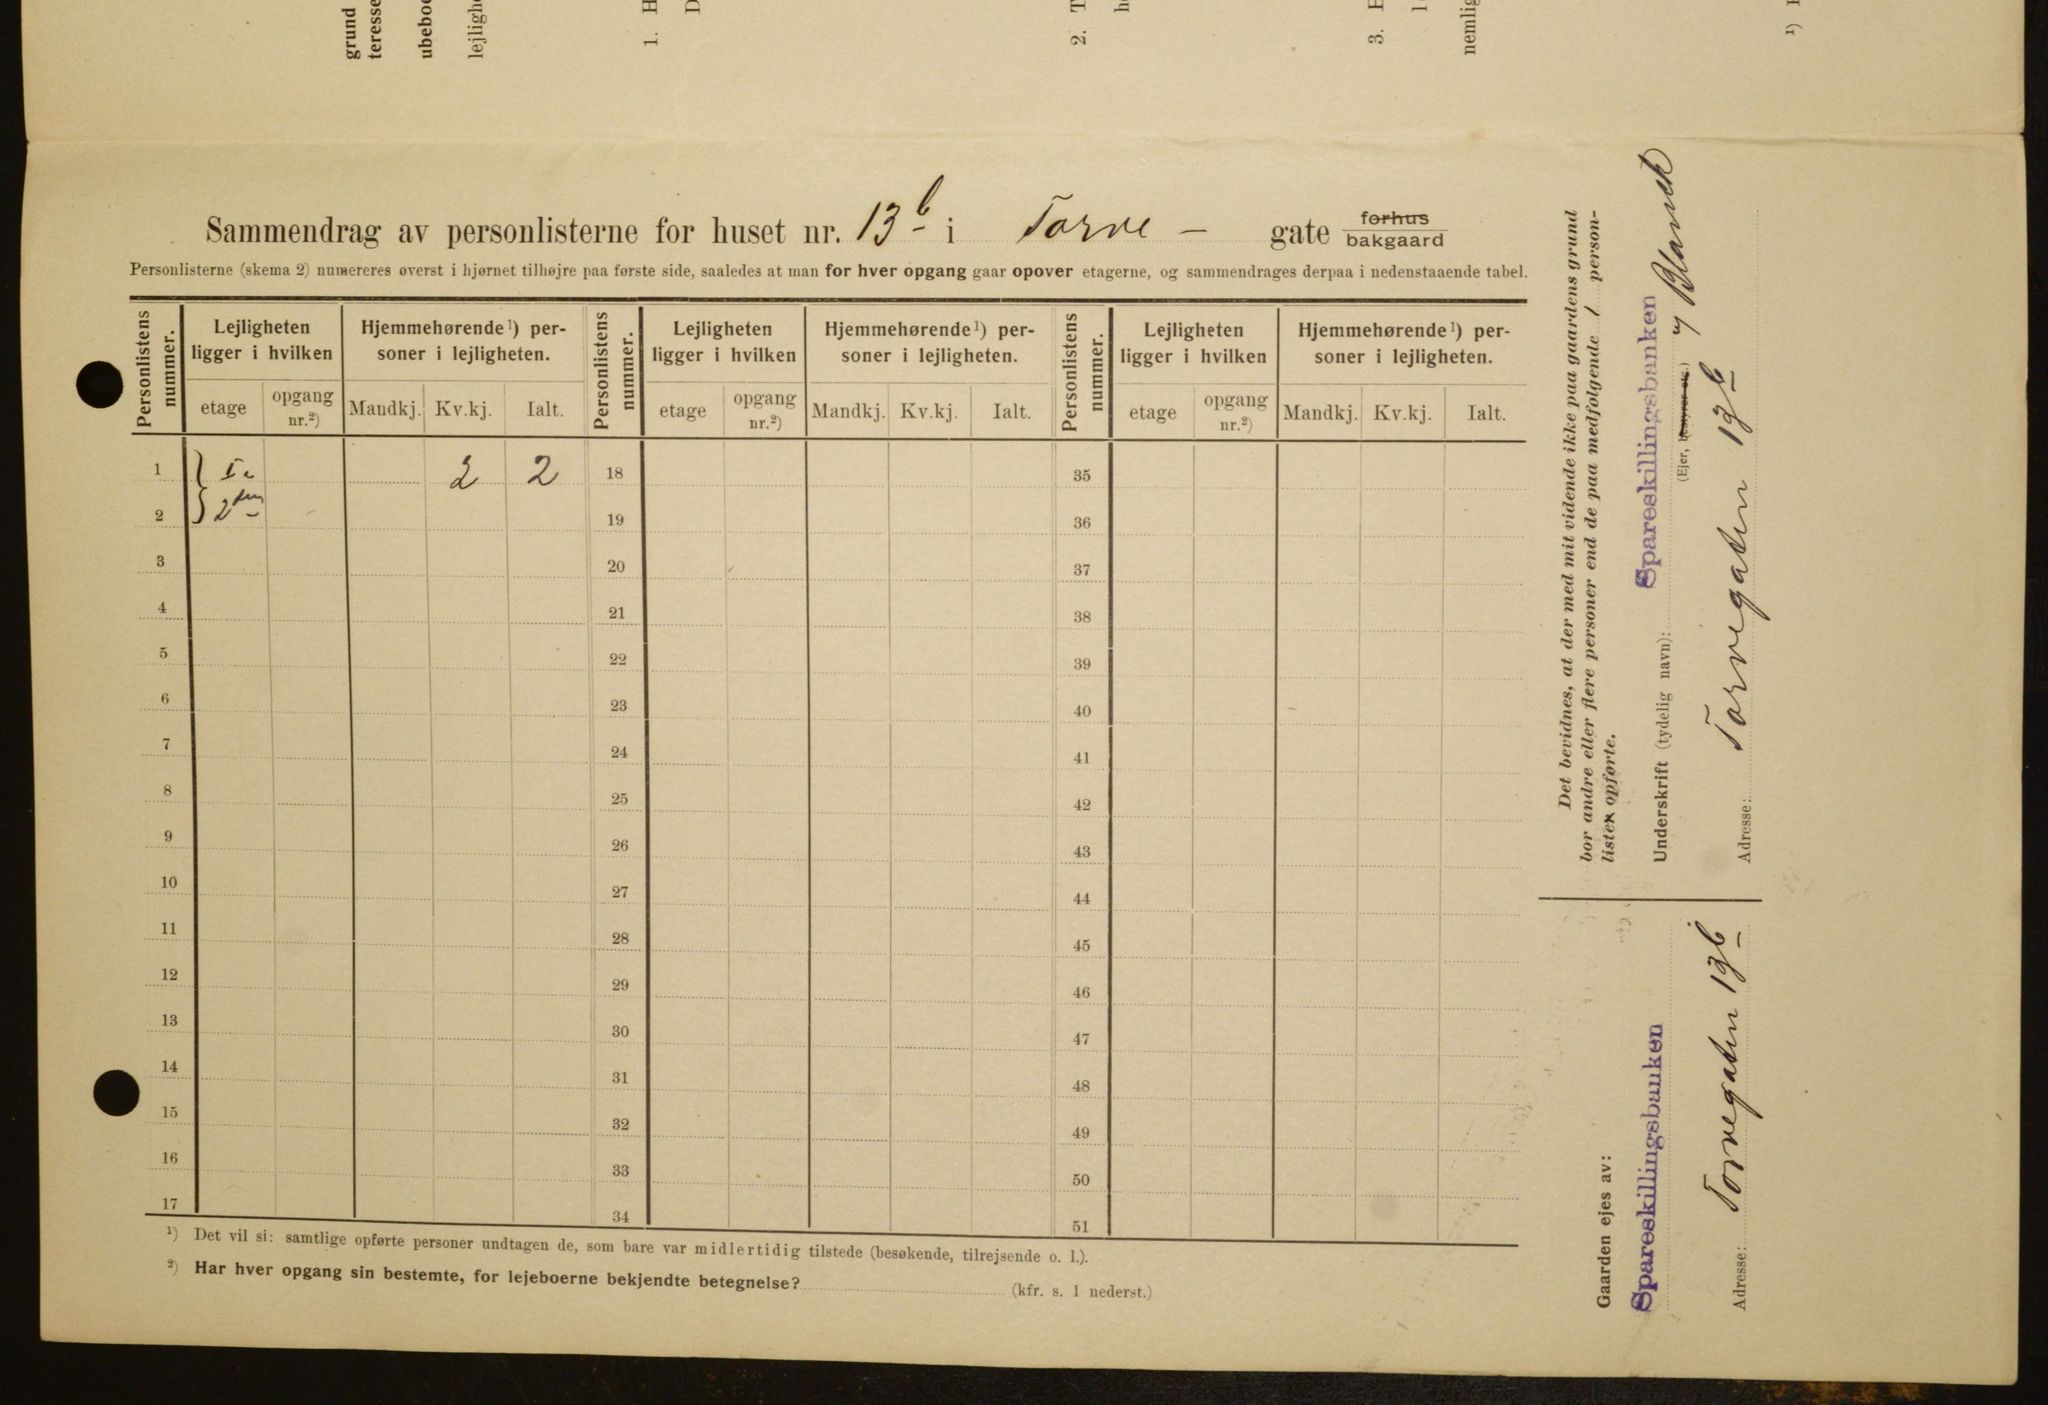 grund
teresse
ubeboe
lejlighe
1. H
D
2. T
he
3. E
nemlig
¹)
Sammendrag av personlisterne for huset nr. 13b i Torve - gate forhus bakgaard
Personlisterne (skema 2) numereres øverst i hjørnet tilhøjre paa første side, saaledes at man for hver opgang gaar opover etagerne, og sammendrages derpaa i nedenstaaende tabel.
Personlistens nummer. Lejligheten ligger i hvilken Hjemmehørende¹) personer i lejligheten. Personlistens nummer. Lejligheten ligger i hvilken Hjemmehørende¹) personer i lejligheten. Personlistens nummer. Lejligheten ligger i hvilken Hjemmehørende¹) personer i lejligheten.
etage opgang nr.²) Mandkj. Kv.kj. Ialt. etage opgang nr.²) Mandkj. Kv.kj. Ialt. etage opgang nr.²) Mandkj. Kv.kj. Ialt.
1 2 2 18 35
2 2den 19 36
3 20 37
4 21 38
5 22 39
6 23 40
7 24 41
8 25 42
9 26 43
10 27 44
11 28 45
12 29 46
13 30 47
14 31 48
15 32 49
16 33 50
17 34 51
¹) Det vil si: samtlige opførte personer undtagen de, som bare var midlertidig tilstede (besøkende, tilrejsende o. l.).
²) Har hver opgang sin bestemte, for lejeboerne bekjendte betegnelse? (kfr. s. 1 nederst.)
Det bevidnes, at der med mit vidende ikke paa gaardens grund
bor andre eller flere personer end de paa medfølgende 1 person-
listen opførte.
Underskrift (tydelig navn): Spareskillingsbanken
(Ejer, bestyrer etc.)
Adresse: Torvegaten 13b
Gaarden ejes av:
Spareskillingsbanken
Adresse: Torvegaten 13b